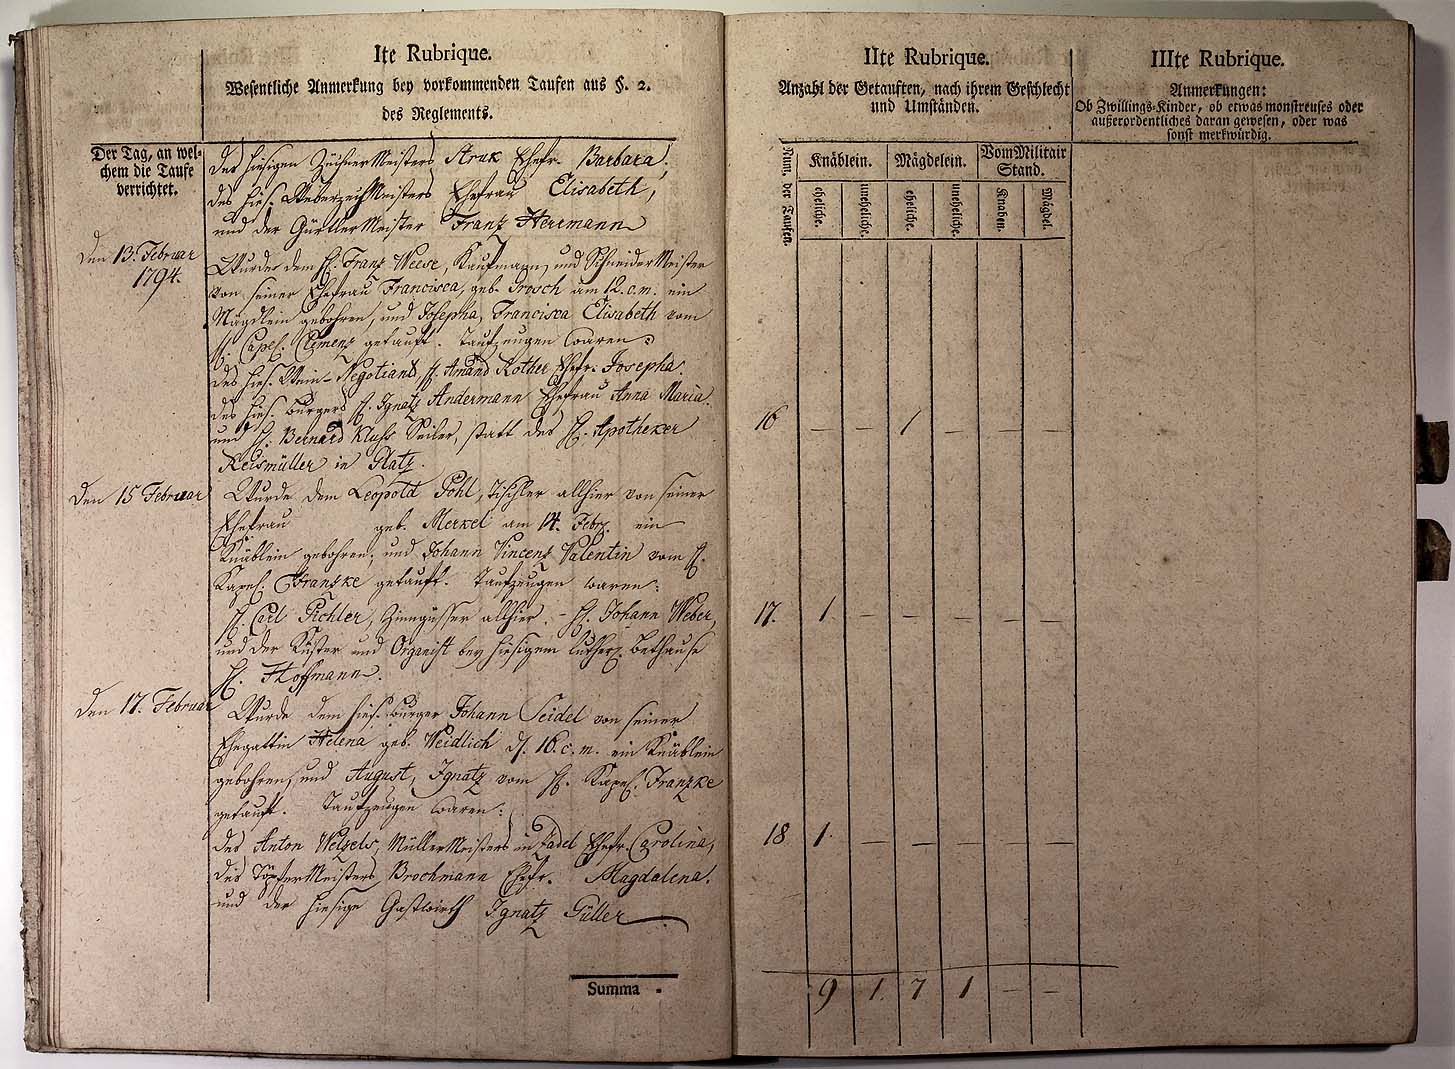 Ite Rubrique.
Wesentliche Anmerkung bey vorkommenden Taufen aus §. 2.
des Reglements.
Der Tag, an wel-
chem die Taufe
verrichtet.
des hiesigen ZüchnerMeisters Barbara,
des hies. Meisters Ehefrau Elisabeth,
und der GürtlerMeister Franz Herrmann
den 13. Februar
1794.
Wurde dem H. Franz Weese, Kaufmann, und SchneiderMeister
von seiner Ehefrau Francisca, geb. Grosch am 12. c. m. ein
Mägdlein gebohren, und Josepha, Francisca Elisabeth vom
H. Capel. Clemenz getauft. Taufzeugen waren:
des hies. Wein-Negotiant, H. Amand Rother Ehefr. Josepha.
des hies. Bürgers H. Ignatz Andermann Ehefrau Anna Maria.
und H. Bernard Seiler, statt des H. Apotheker
Reismüller in Glatz.
den 15 Februar
Wurde dem Leopold Pohl, Tischler allhier von seiner
Ehefrau geb. Merkel am 14. Febr. ein
Knäblein gebohren, und Johann Vincenz Valentin vom H.
Kapel. Franzke getauft. Taufzeugen waren:
H. Carl Pichler, Zinngüsser allhier. – H. Johann Weber,
und der Küster und Organist bey hiesigem luther. Bethause
H. Hoffmann.
den 17. Februar
Wurde dem hies. Bürger Johann Seidel von seiner
Ehegattin Helena geb. Weidlich d. 16. c. m. ein Knäblein
gebohren, und August, Ignatz vom H. Kapel. Franzke
getauft. Taufzeugen waren:
des Anton Welzels, MüllerMeisters in Ehefr. Carolina,
des TöpferMeisters Brochmann Ehefr. Magdalena.
und der hiesige Gastwirth Ignatz Güller
Summa
IIte Rubrique.
Anzahl der Getauften, nach ihrem Geschlecht
und Umständen.
Num. der Taufen.
Knäblein.
Mägdelein.
Vom Militair
Stand.
eheliche.
uneheliche.
eheliche.
uneheliche.
Knaben.
Mägdel.
16 – – 1 – – –
17. 1. – – – – –
18 1. – – – – –
9 1. 7 1 – –
IIIte Rubrique.
Anmerkungen:
Ob Zwillings-Kinder, ob etwas monstreuses oder
außerordentliches daran gewesen, oder was
sonst merkwürdig.